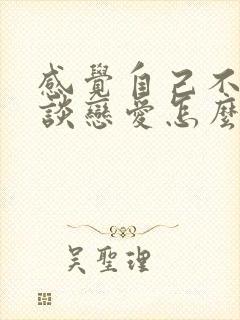 感覺自己不
談戀愛怎麼
吴聖理